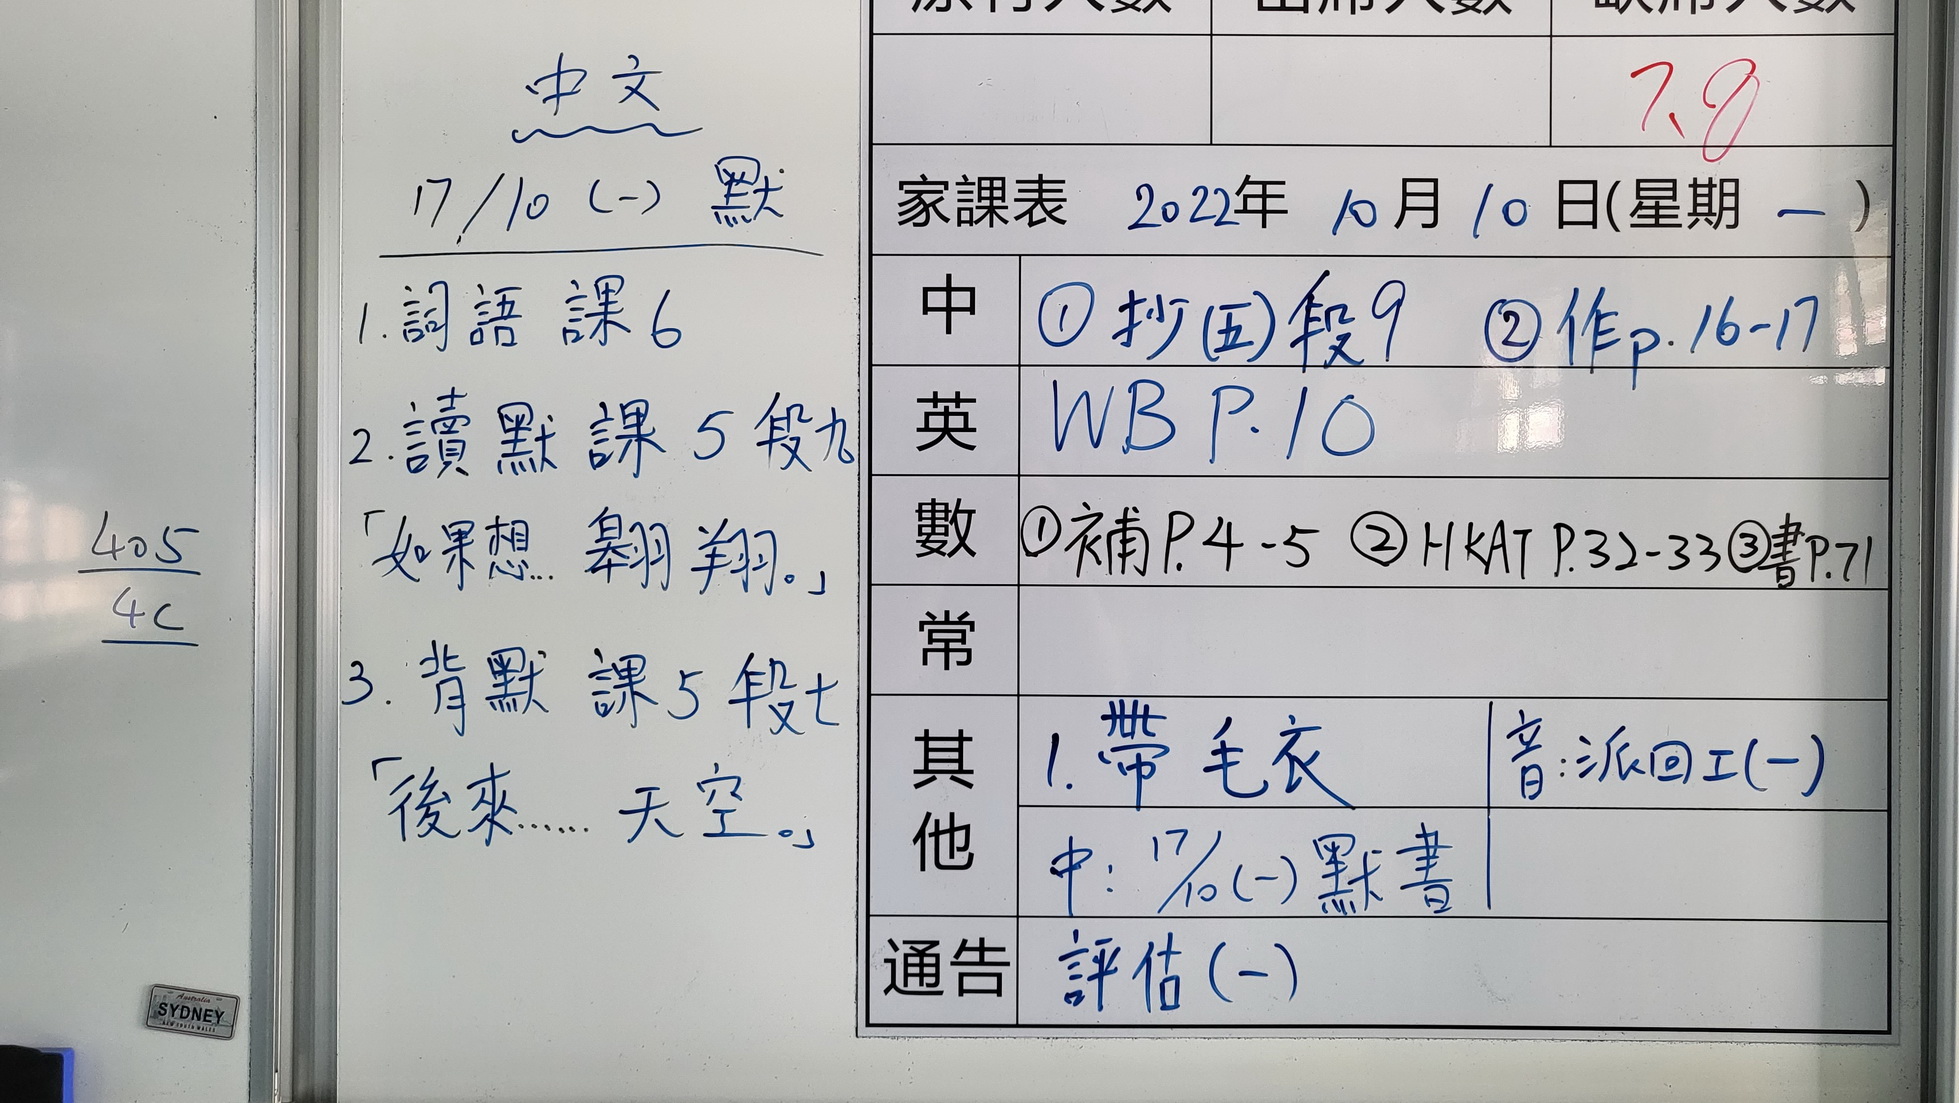 中文
17/10 (一) 默
1. 詞語 課6
2. 讀默 課5 段九
「如果想... 翱翔。」
3. 背默 課5 段七
「後來...... 天空。」
405
4C
Australia
SYDNEY
NEW SOUTH WALES
原有人數 出席人數 缺席人數
7、8
家課表 2022年 10月10日(星期一)
中 ①抄(五)段9 ②作p.16-17
英 WB P.10
數 ①補P.4-5 ②HKAT P.32-33 ③書P.71
常
其他 1. 帶毛衣 音:派回工(一)
中: 17/10(一)默書
通告 評估(一)